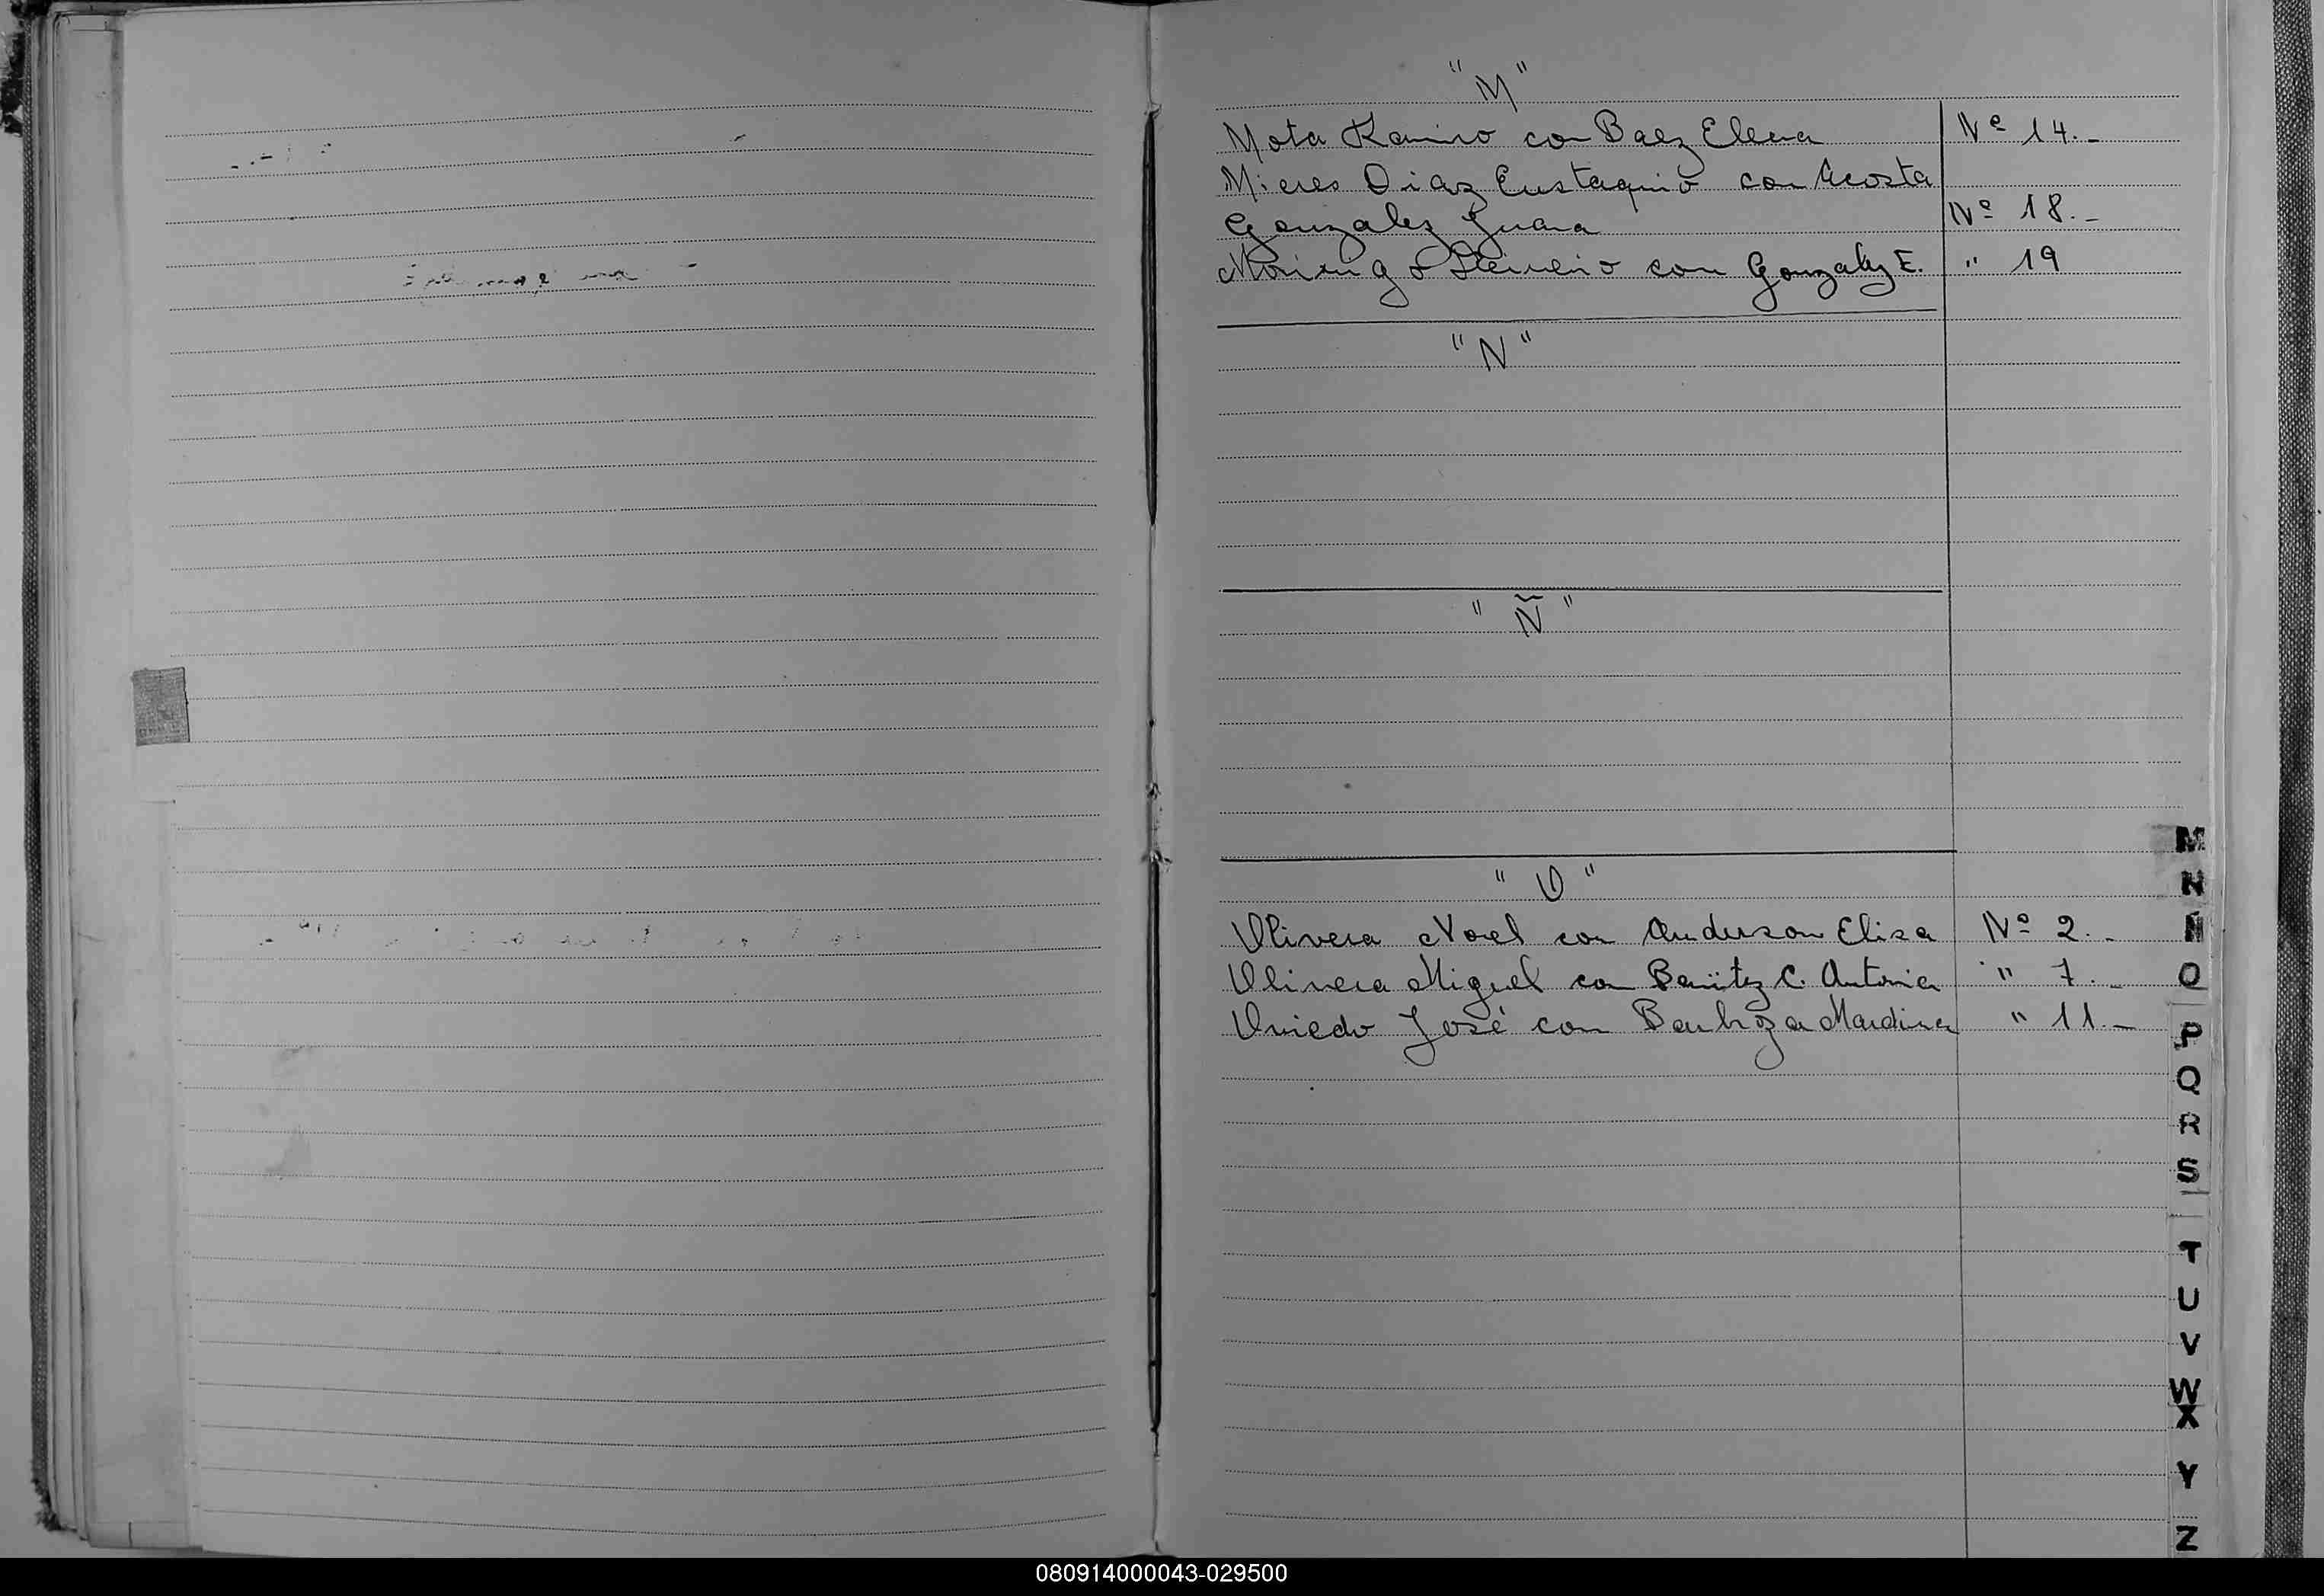 "M"
Mota Ramiro con Baez Elena Nº 14.-
Mieres Diaz Eustaquio con Acosta
Gonzalez Juana Nº 18.-
Morinigo con Gonzalez E. " 19
"N"
"Ñ"
"O"
Olivera Noel con Anderson Elisa Nº 2.-
Olivera Miguel con Benitez C. Antonia " 7.-
Oviedo José con Barboza Mardina " 11.-
M
N
Ñ
O
P
Q
R
S
T
U
V
W
X
Y
Z
080914000043-029500